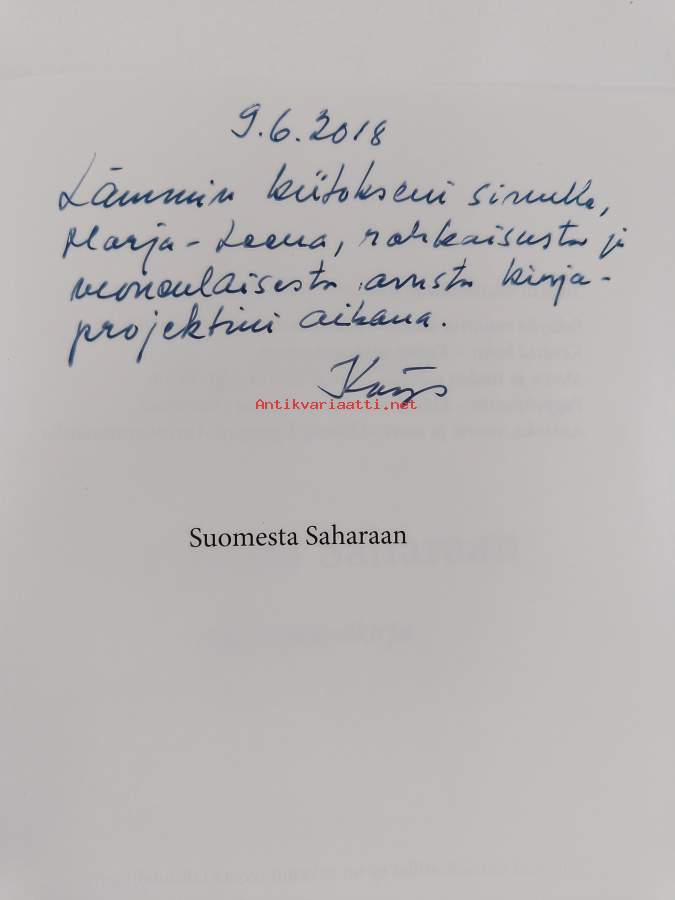 9.6.2018
Lämmin kiitokseni sinulle,
Marja-Leena, rohkaisusta ja
avusta kirja-
projektini aikana.
Antikvariaatti.net
Suomesta Saharaan